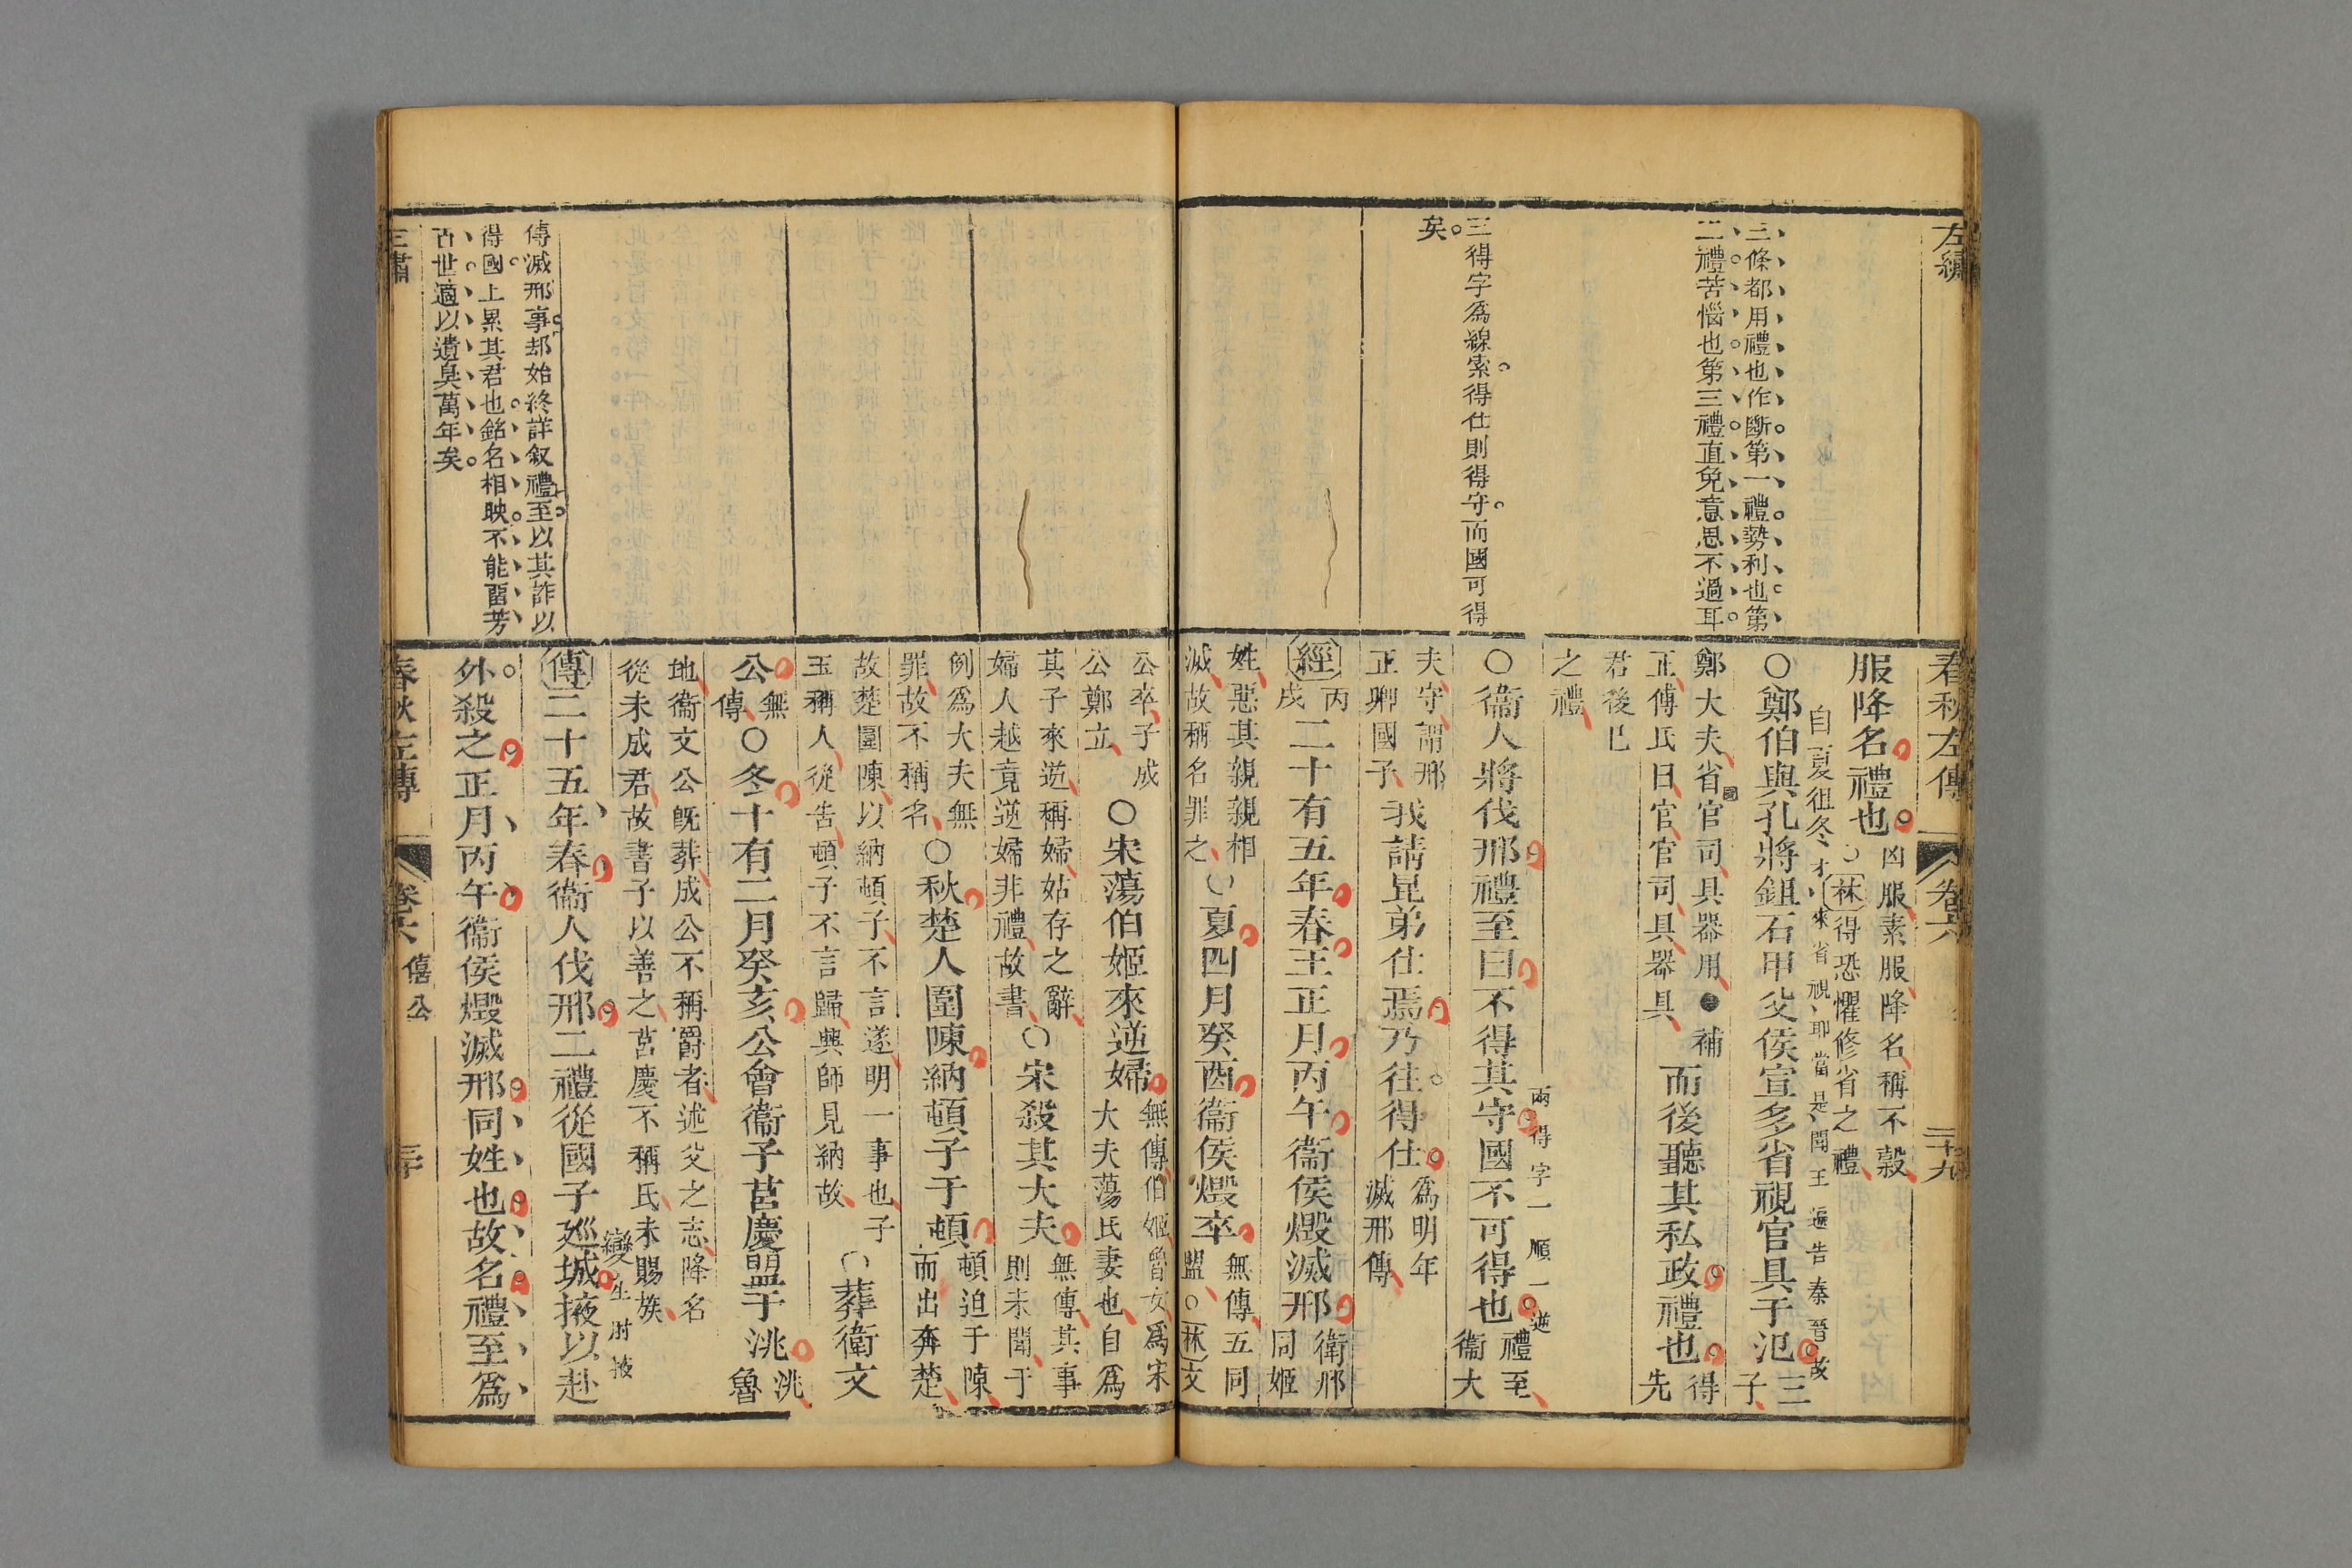 左繡
三條都用禮也作斷第一禮勢利也第
二禮苦惱也第三禮直免意思不過耳
三得字爲線索得仕則得守而國可得
矣
春秋左傳
卷六
二十九
服降名禮也
凶服素服降名稱不穀
林得恐懼修省之禮
自夏徂冬才來省視耶當是聞王遍告秦晉故
○鄭伯與孔將鉏石甲父侯宣多省視官具于氾
三子
鄭大夫省官司具器用●補
正傳氏曰官官司具器具
而後聽其私政禮也
得先
君後己
之禮
○衞人將伐邢禮至曰不得其守國不可得也
兩得字一順一逆
禮至衞大
夫守謂邢
正卿國子
我請昆弟仕焉乃往得仕
爲明年
滅邢傳
經
丙戌
二十有五年春王正月丙午衞侯燬滅邢
衛邢同姬
姓惡其親親相
滅故稱名罪之
○夏四月癸酉衞侯燬卒
無傳五同
盟○林文
公卒子成
公鄭立
○宋蕩伯姬來逆婦
無傳伯姬魯女爲宋
大夫蕩氏妻也自爲
其子來逆稱婦姑存之辭
婦人越竟逆婦非禮故書
○宋殺其大夫
無傳其事
則未聞于
例爲大夫無
罪故不稱名
○秋楚人圍陳納頓子于頓
頓迫于陳
而出奔楚
故楚圍陳以納頓子不言遂明一事也子
玉稱人從告頓子不言歸興師見納故
○葬衛文
公
無傳
○冬十有二月癸亥公會衞子莒慶盟于洮
洮魯
地衞文公既葬成公不稱爵者述父之志降名
從未成君故書子以善之莒慶不稱氏未賜族
傳
二十五年春衞人伐邢二禮從國子廵城掖以赴
變生肘掖
外殺之正月丙午衞侯燬滅邢同姓也故名禮至爲
傳滅邢事却始終詳叙禮至以其詐以
得國上累其君也銘名相映不能畱芳
百世適以遺臭萬年矣
春秋左傳
卷六
僖公
三十